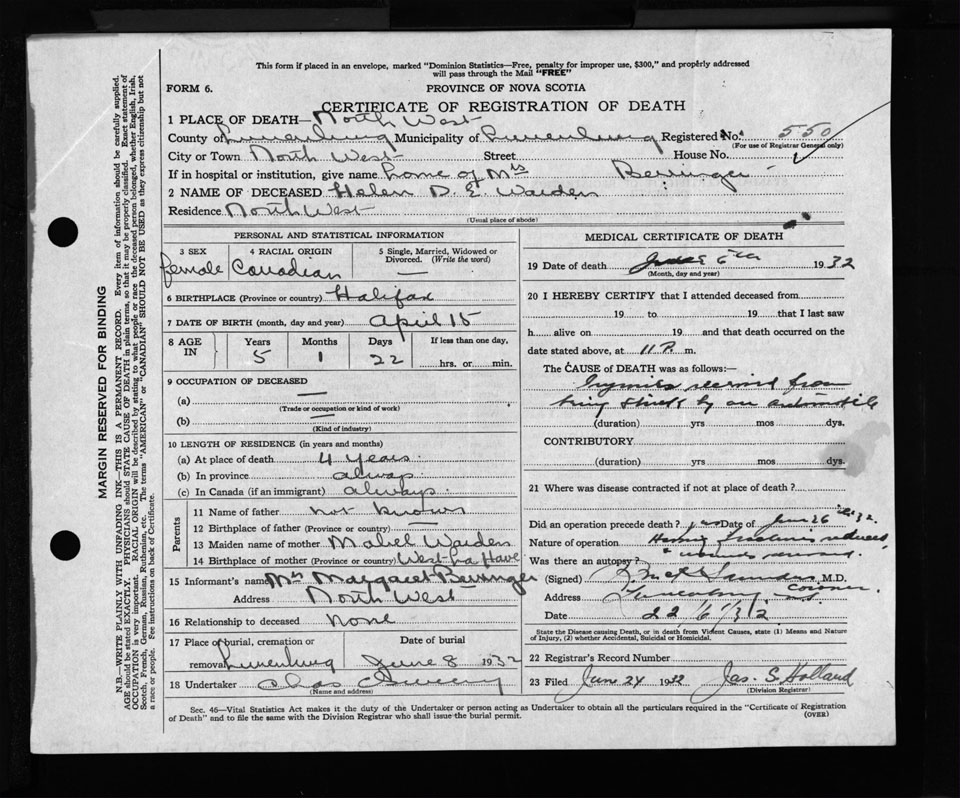 This form if placed in an envelope, marked "Dominion Statistics—Free, penalty for improper use, $300," and properly addressed
will pass through the Mail "FREE"
FORM 6.
PROVINCE OF NOVA SCOTIA
CERTIFICATE OF REGISTRATION OF DEATH
1 PLACE OF DEATH— North West
County of Lunenburg Municipality of Lunenburg Registered No. 550
(For use of Registrar General only)
City or Town North West Street House No.
If in hospital or institution, give name home of Mrs Beringer
2 NAME OF DECEASED Helen D. E. Warden
Residence North West
(Usual place of abode)
PERSONAL AND STATISTICAL INFORMATION
3 SEX 4 RACIAL ORIGIN 5 Single, Married, Widowed or
Divorced. (Write the word)
female Canadian —
6 BIRTHPLACE (Province or country) Halifax
7 DATE OF BIRTH (month, day and year) April 15
8 AGE IN Years Months Days If less than one day,
5 1 22 hrs. or min.
9 OCCUPATION OF DECEASED
(a) —
(Trade or occupation or kind of work)
(b) —
(Kind of industry)
10 LENGTH OF RESIDENCE (in years and months)
(a) At place of death 4 years
(b) In province always
(c) In Canada (if an immigrant) always
Parents
11 Name of father not known
12 Birthplace of father (Province or country) —
13 Maiden name of mother Mabel Warden
14 Birthplace of mother (Province or country) West La Have
15 Informant's name Mrs Margaret Beringer
Address North West
16 Relationship to deceased none
17 Place of burial, cremation or Date of burial
removal Lunenburg June 8 1932
18 Undertaker Chas
(Name and address)
MEDICAL CERTIFICATE OF DEATH
19 Date of death June 6th 1932
(Month, day and year)
20 I HEREBY CERTIFY that I attended deceased from
19 to 19 that I last saw
h alive on 19 and that death occurred on the
date stated above, at 11 P. m.
The CAUSE of DEATH was as follows:—
Injuries received from
being struck by an automobile
(duration) yrs mos dys.
CONTRIBUTORY
(duration) yrs mos dys.
21 Where was disease contracted if not at place of death?
Did an operation precede death? yes Date of June 1932.
Nature of operation reduced
Was there an autopsy?
(Signed) M.D.
coroner
Address Lunenburg N.S.
Date 22/6/32
State the Disease causing Death, or in death from Violent Causes, state (1) Means and Nature
of Injury, (2) whether Accidental, Suicidal or Homicidal.
22 Registrar's Record Number
23 Filed June 24 1932 Jas. S. Holland
(Division Registrar)
Sec. 46—Vital Statistics Act makes it the duty of the Undertaker or person acting as Undertaker to obtain all the particulars required in the "Certificate of Registration
of Death" and to file the same with the Division Registrar who shall issue the burial permit.
(OVER)
MARGIN RESERVED FOR BINDING
N.B.—WRITE PLAINLY WITH UNFADING INK—THIS IS A PERMANENT RECORD. Every item of information should be carefully supplied.
AGE should be stated EXACTLY. PHYSICIANS should STATE CAUSE OF DEATH in plain terms, so that it may be properly classified. Exact statement of
OCCUPATION is very important. RACIAL ORIGIN will be described by stating to what people or race the deceased person belonged, whether English, Irish,
Scotch, French, German, Russian, Ruthenian, etc. The terms "AMERICAN" or "CANADIAN" SHOULD NOT BE USED as they express citizenship but not
a race or people. See instructions on back of Certificate.